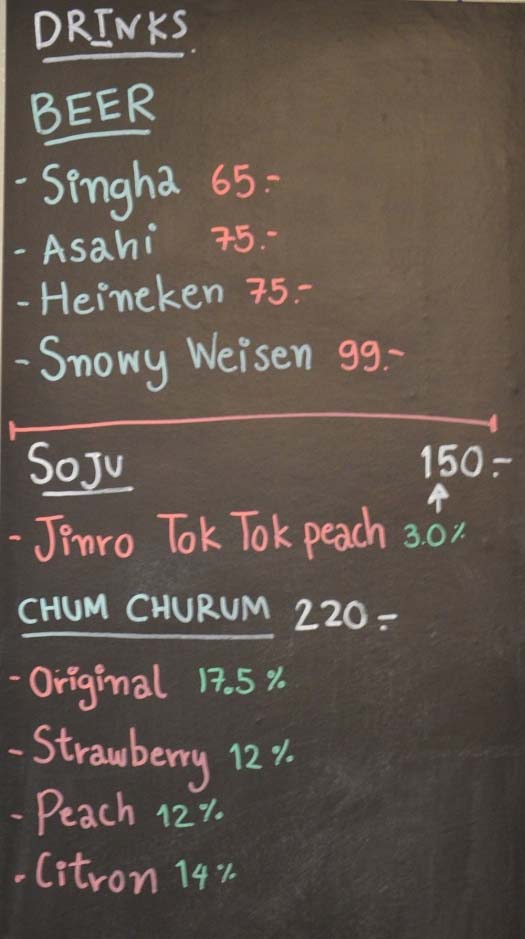 DRINKS.
BEER
- Singha 65.-
- Asahi 75.-
- Heineken 75.-
- Snowy Weisen 99.-
SOJU 150.-
- Jinro Tok Tok peach 3.0%
CHUM CHURUM 220.-
- Original 17.5%
- Strawberry 12%
- Peach 12%
- Citron 14%